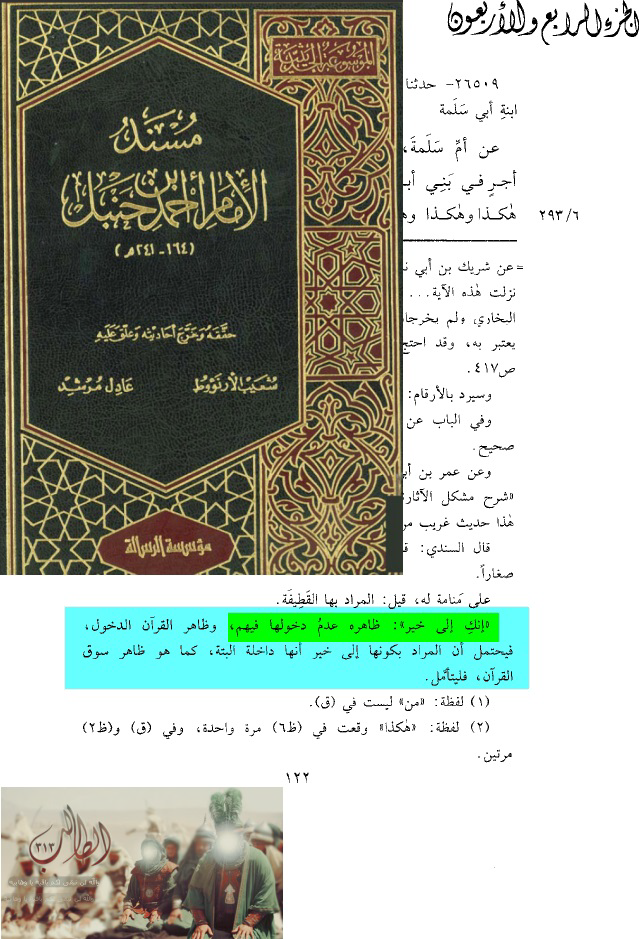 الجزء الرابع والأربعون
الموسوعة الحديثية
مسند
الإمام أحمد بن حنبل
(١٦٤ - ٢٤١ هـ)
حققه وخرج أحاديثه وعلق عليه
شعيب الأرنؤوط
عادل مرشد
مؤسسة الرسالة
٢٦٥٠٩- حدثنا
ابنةِ أبي سَلَمة
عن أمِّ سَلَمةَ،
أجرٍ في بَنِي أبـ
هٰكذا وهٰكذا وهـ
٢٩٣/٦
= عن شريك بن أبي نـ
نزلت هٰذه الآية...
البخاري ولم يخرجا
يعتبر به، وقد احتج
ص٤١٧.
وسيرد بالأرقام:
وفي الباب عن
صحيح.
وعن عمر بن أبـ
«شرح مشكل الآثار
هٰذا حديث غريب مر
قال السندي: قـ
صغاراً.
على مَنامة له، قيل: المراد بها القَطِيفَة.
«إنكِ إلى خير»: ظاهره عدمُ دخولها فيهم، وظاهر القرآن الدخول،
فيحتمل أن المراد بكونها إلى خير أنها داخلة البتة، كما هو ظاهر سوق
القرآن، فليتأمَّل.
(١) لفظة: «من» ليست في (ق).
(٢) لفظة: «هٰكذا» وقعت في (ظ٦) مرة واحدة، وفي (ق) و(ظ٢)
مرتين.
١٢٢
الطالب
٣١٣